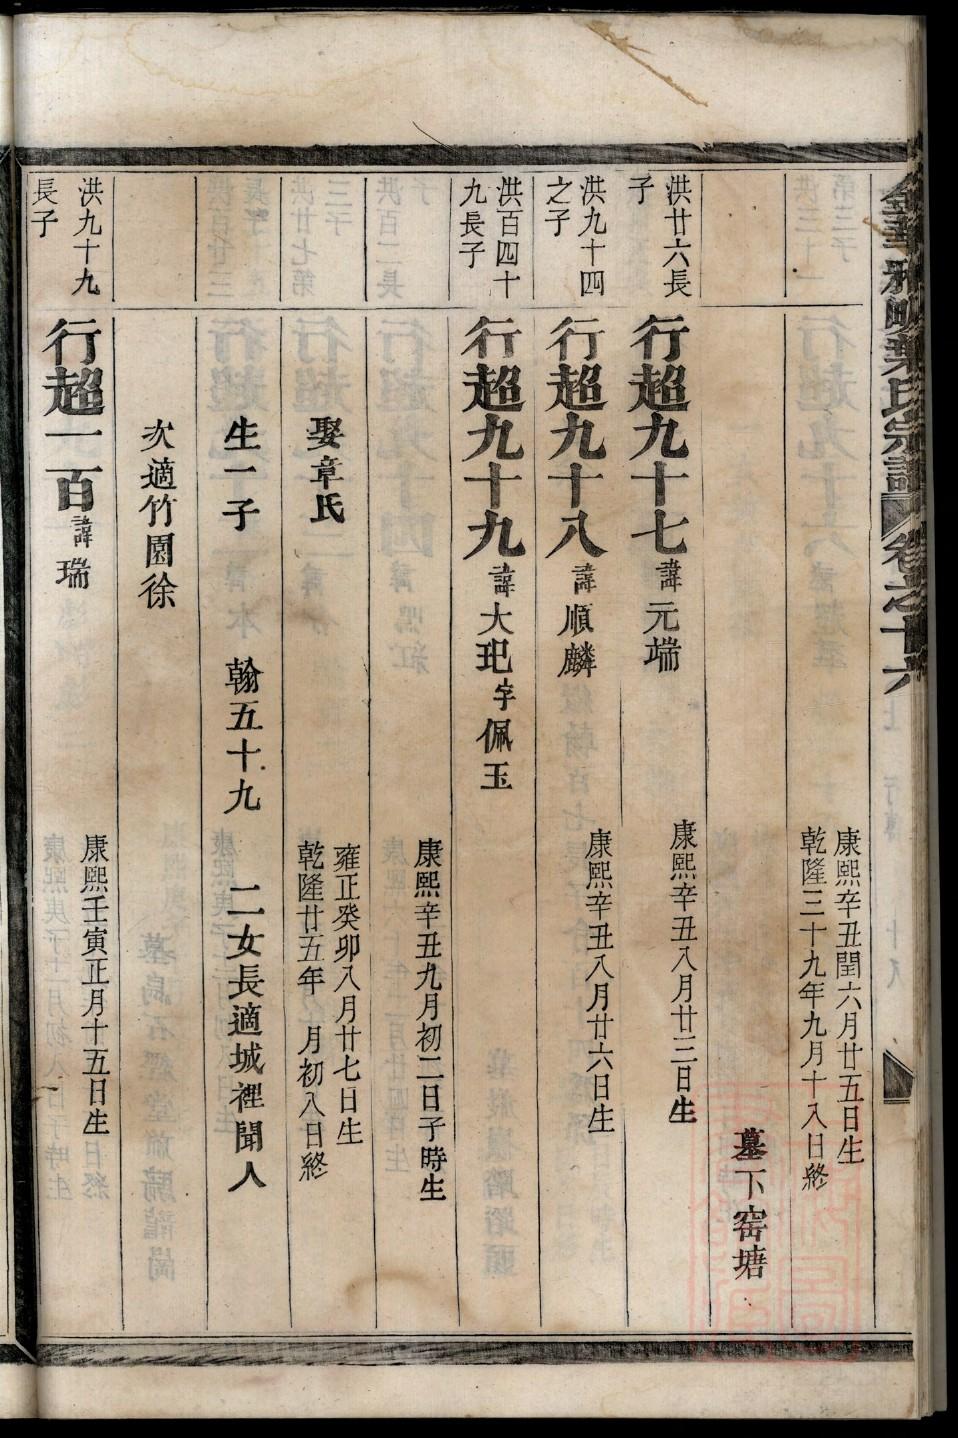 葉氏宗譜 卷之十六
康熙辛丑閏六月廿五日生
乾隆三十九年九月十八日終
墓下窑塘
洪廿六長
子
行超九十七 諱元端
康熙辛丑八月廿三日生
洪九十四
之子
行超九十八 諱順麟
康熙辛丑八月廿六日生
洪百四十
九長子
行超九十九 諱大玘字佩玉
康熙辛丑九月初二日子時生
娶章氏
雍正癸卯八月廿七日生
乾隆廿五年 月初八日終
生一子 翰五十九 二女長適城裡聞人
次適竹園徐
洪九十九
長子
行超一百 諱瑞
康熙壬寅正月十五日生